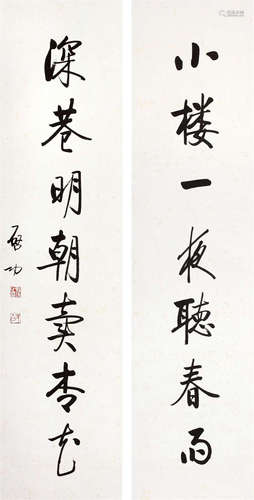 小楼一夜聽春雨
深巷明朝卖杏花
启功